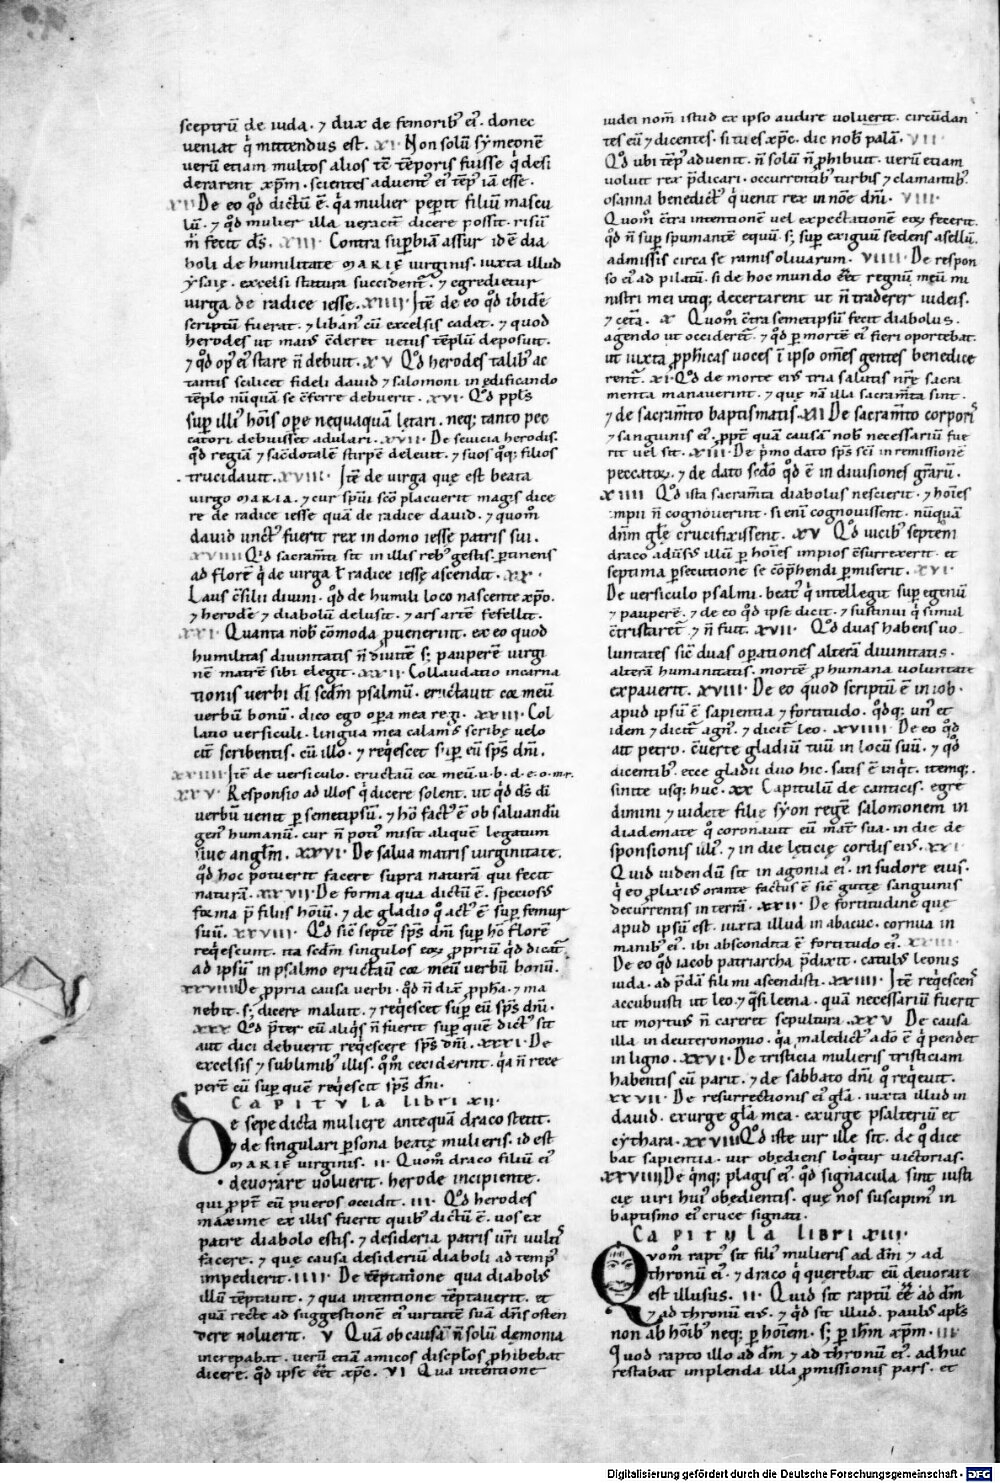 sceptrũ de iuda · ⁊ dux de femorib; ei᷒ · donec
veniat q̇ mittendus est · XI · Non solũ sẏmeonẽ
verũ etiam multos alios tẽ tẽporis fuisse q̇ desi
derarent xp̃m · scientes aduentẽ ei᷒ tẽp᷒ iã esse ·
De eo qđ dictũ ẽ · q̇a mulier peperit filiũ mascu
lũ · ⁊ qđ mulier illa veracẽ dicere possit · risũ
m̃ fecit dś · XIII · Contra supbiã assur id ẽ dia
boli de humilitate MARIĘ virginis · iuxta illud
ẏsaię · excelsi statura succident᷒ · ⁊ egredietur
virga de radice iesse · XIIII · Itẽ de eo qđ ibidẽ
scriptũ fuerat · ⁊ liban᷒ cũ excelsis cadet · ⁊ quod
herodes ut mai᷒ c̃deret uetus tẽplũ deposuit ·
⁊ qđ op᷒ ei᷒ stare ñ debuit · XV Qđ herodes talib; ac
tantis scilicet fideli dauid ⁊ salomoni in ędificando
tẽplo nũquã se c̃ferre debuerit · XVI · Qđ ppl̃s
sup illi᷒ hoĩs ope nequaquã lętari · neq; tanto pec
catori debuisset adulari · XVII · De seuicia herodis ·
qđ regiã ⁊ sac̃dotalẽ stirpẽ deleuit · ⁊ suos q̊q; filios
trucidauit · XVIII · Itẽ de virga quę est beata
virgo MARIA · ⁊ cur sp̃ui sc̃o placuerit magis dice
re de radice iesse quã de radice dauid · ⁊ quom̃
dauid unct᷒ fuerit rex in domo iesse patris sui ·
XVIIII Qđ sacram̃ti sit in illis reb; gestis · ptinens
ad florẽ q̇ de virga ł radice iesse ascendit · XX ·
Laus c̃silii diuini · qđ de humili loco nascente xp̃o ·
⁊ herodẽ ⁊ diabolũ delusit · ⁊ ars artẽ fefellit ·
XXI · Quanta nob̃ cõmoda puenerint · ex eo quod
humilitas diuinitatis ñ diuitẽ s; pauperẽ virgi
nẽ matrẽ sibi elegit · XXII · Collaudatio incarna
tionis verbi dĩ scdm̃ psalmũ · eructauit cor meũ
verbũ bonũ · dico ego opa mea regi · XXIII · Col
latio versiculi · lingua mea calam᷒ scribę velo
cit̃ scribentis · cũ illo · ⁊ reqescet sup eũ sp̃s dñi ·
XXIIII · Itẽ de versiculo · eructauit cor meũ · u · b · d · e · o · m · r ·
XXV · Responsio ad illos q̇ dicere solent · ut qđ dś di
verbũ uenit p semetipsũ · ⁊ hõ fact᷒ ẽ ob saluandũ
gen᷒ humanũ · cur ñ poti᷒ misit aliquẽ legatum
siue angl̃m · XXVI · De salua matris virginitate ·
qđ hoc potuerit facere supra naturã qui fecit
naturã · XXVII · De forma qua dictũ ẽ · speciosus
forma p̃ filiis hõiũ · ⁊ de gladio q̊ act᷒ ẽ sup femur
suũ · XXVIII · Qđ sic̃ septẽ sp̃s dñi sup hc̃ florẽ
reqescunt · ita scdm̃ singulos eoꝝ ppriũ qđ dicat᷒
ad ipsũ in psalmo eructauit cor meũ verbũ bonũ ·
XXVIIII De ppria causa verbi · qđ ñ dix̃ ppha · ⁊ ma
nebit · s; dicere maluit · ⁊ reqescet sup eũ sp̃s dñi ·
XXX · Qđ pt̃er eũ aliq̇s ñ fuerit sup quẽ dict᷒ sit
aut dici debuerit reqescere sp̃s dñi · XXXI · De
excelsis ⁊ sublimib; illis · qm̃ ceciderint · q̇a ñ rece
pert̃ eũ sup quẽ reqescit sp̃s dñi ·
CAPITVLA libri XII ·
De sepe dicta muliere antequã draco stetit ·
⁊ de singulari psona beatę mulieris · id est
MARIĘ virginis · II · Quom̃ draco filiũ ei᷒
deuorare uoluerit · herode incipiente ·
qui ppt̃ eũ pueros occidit · III · Qđ herodes
maxime ex illis fuerit quib; dictũ ẽ · uos ex
patre diabolo estis · ⁊ desideria patris ur̃i uult᷒
facere · ⁊ quę causa desideriũ diaboli ad temp᷒
impedierit · IIII · De tẽptatione qua diabolus
illũ tẽptauit · ⁊ qua intentione tẽptauerit · et
quã recte ad suggestionẽ ei᷒ virtutẽ suã dñs osten
dere noluerit · V Quã ob causã ñ solũ dęmonia
increpabat · verũ etiã amicos discipl̃os phibebat
dicere · qđ ipse eẽt xp̃c · VI Qua intentione
iudei nom̃ istud ex ipso audire voluerit · circũdan
tes eũ ⁊ dicentes · si tu es xp̃c · dic nob̃ palã · VII
Qđ ubi tẽp᷒ aduenit · ñ solũ ñ phibuit · verũ etiam
voluit rex p̃dicari · occurrentib; turbis ⁊ clamantib; ·
osanna benedict᷒ q̇ uenit rex in noĩe dñi · VIII ·
Quom̃ c̃tra intentionẽ vel expectationẽ eoꝝ fecerit ·
qđ ñ sup spumantẽ equũ · s; sup exiguũ sedens asellũ ·
admissis circa se ramis oliuarum · VIIII · De respon
so ei᷒ ad pilatũ · si de hoc mundo eẽt regnũ meũ mi
nistri mei utiq; decertarent ut ñ traderer iudeis ·
⁊ cet̃a · X Quom̃ c̃tra semetipsũ fecit diabolus ·
agendo ut occideret᷒ · ⁊ qđ p morte ei᷒ fieri oportebat ·
ut iuxta pph̃icas uoces ĩ ipso om̃es gentes benedice
rent᷒ · XI · Qđ de morte ei᷒ tria salutis nr̃ę sacra
menta manauerint · ⁊ quę nã illa sacram̃ta sint ·
⁊ de sacram̃to baptismatis · XII De sacram̃to corporis
⁊ sanguinis ei᷒ · ppt̃ quã causã nob̃ necessariũ fue
rit vel sit · XIII · De p̃mo dato sp̃s sc̃i in remissionẽ
peccatoꝝ · ⁊ de dato sc̃do qđ ẽ in diuisiones gr̃arũ ·
XIIII Qđ ista sacram̃ta diabolus nescierit · ⁊ hoĩes
impii ñ cognouerint · si enĩ cognouissent · nũquã
dñm gl̃ę crucifixissent · XV Qđ uicib; septem
draco adũsus illũ p hoĩes impios c̃surrexerit · et
septima psecutione se cõp̃hendi pmiserit · XVI ·
De versiculo psalmi · beat᷒ q̇ intellegit sup egenũ
⁊ pauperẽ · ⁊ de eo qđ ipse dicit · ⁊ sustinui q̇ simul
c̃tristaret᷒ ⁊ ñ fuit · XVII · Qđ duas habens uo
luntates sic̃ duas operationes alterã diuinitatis ·
alterã humanitatis · mortẽ p humana uoluntate
expauerit · XVIII · De eo quod scriptũ ẽ in iob ·
apud ipsũ ẽ sapientia ⁊ fortitudo · qđq; un᷒ et
idem ⁊ dicit᷒ agn᷒ · ⁊ dicit᷒ leo · XVIIII · De eo qđ
ait petro · c̃uerte gladiũ tuũ in locũ suũ · ⁊ qđ
dicentib; ecce gladii duo hic · satis ẽ inq̇t · itemq; ·
sinite usq; huc · XX Capitulũ de canticis · egre
dimini ⁊ uidete filię sẏon regẽ salomonem in
diademate q̊ coronauit eũ mat̃ sua · in die de
sponsionis illi᷒ · ⁊ in die lęticię cordis ei᷒ · XXI
Quid uidendũ sit in agonia ei᷒ · in sudore eius ·
q̇ eo plixi᷒ orante factus ẽ sic̃ guttę sanguinis
decurrentis in terrã · XXII · De fortitudine quę
apud ipsũ est · iuxta illud in abacuc · cornua in
manib; ei᷒ · ibi abscondita ẽ fortitudo ei᷒ · XXIII ·
De eo qđ iacob patriarcha p̃dixit · catulus leonis
iuda · ad p̃dã fili mi ascendisti · XXIIII · Itẽ reqescens
accubuisti ut leo · ⁊ q̇si leena · quã necessariũ fuerit
ut mortuus ñ careret sepultura · XXV De causa
illa in deuteronomio · q̇a maledict᷒ a dõ ẽ q̇ pendet
in ligno · XXVI · De tristicia mulieris tristiciam
habentis cũ parit · ⁊ de sabbato dñi q̊ reqeuit ·
XXVII · De resurrectionis ei᷒ gl̃a · iuxta illud in
dauid · exurge gl̃a mea · exurge psalteriũ et
cẏthara · XXVIII Qđ iste vir ille sit · de q̊ dice
bat sapientia · uir obędiens loq̇tur uictorias ·
XXVIIII De q̇nq; plagis ei᷒ · qđ signacula sint iusti
cię uiri hui᷒ obędientis · quę nos suscipim᷒ in
baptismo ei᷒ cruce signati ·
CAPITVLA LIBRI XIII ·
Quom̃ rapt᷒ sit fili᷒ mulieris ad dm̃ ⁊ ad
thronũ ei᷒ · ⁊ draco q̇ querebat eũ deuorare
est illusus · II · Quid sit raptũ eẽ ad dm̃
⁊ ad thronũ ei᷒ · ⁊ qđ sit illud · paulus apl̃s
non ab hoĩb; neq; p hoĩem · s; p ih̃m xp̃m · III ·
Quod rapto illo ad dm̃ ⁊ ad thronũ ei᷒ · adhuc
restabat implenda illa pmissionis pars · et
Digitalisierung gefördert durch die Deutsche Forschungsgemeinschaft - DFG